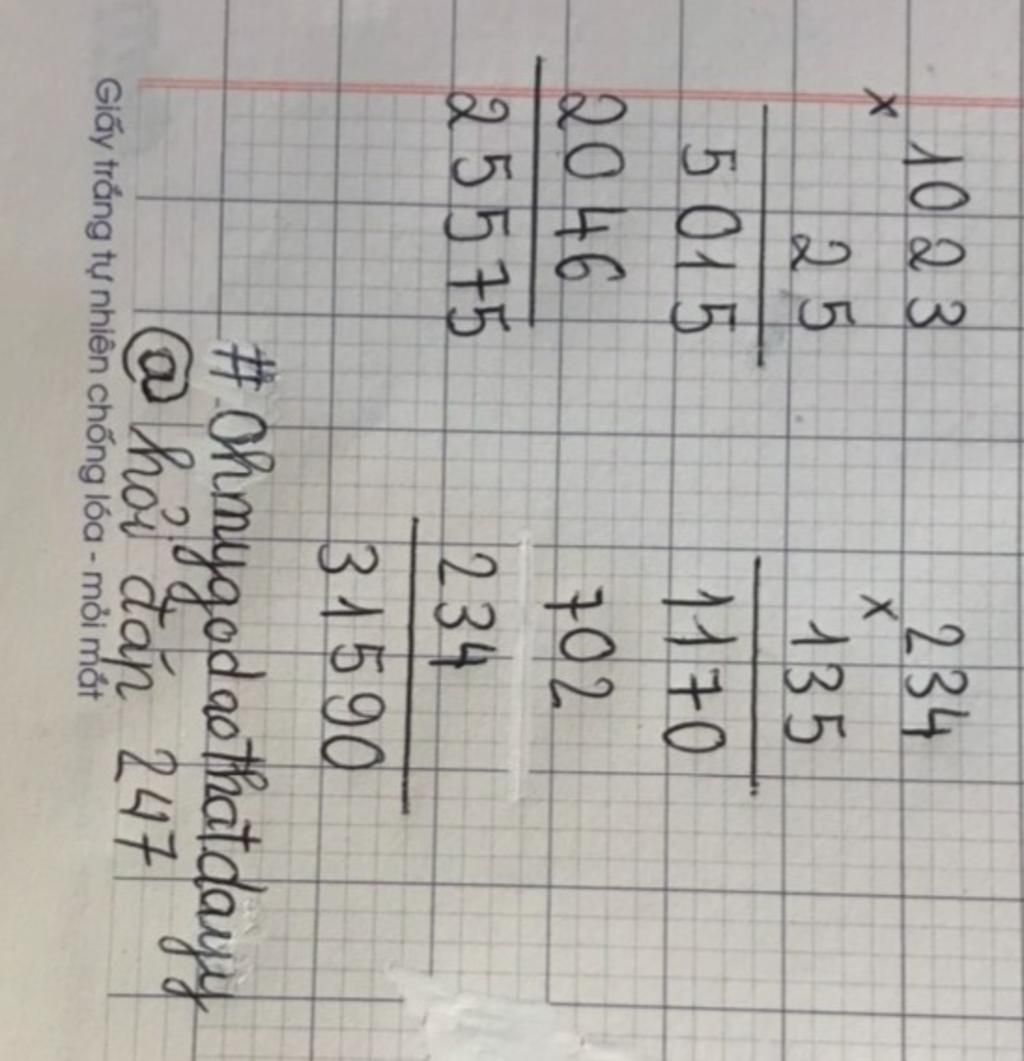 × 1023
25
5015
2046
25575
× 234
135
1170
702
234
31590
#ohmygodaothatdayy
@hỏi đáp 247
Giấy trắng tự nhiên chống lóa - mỏi mắt